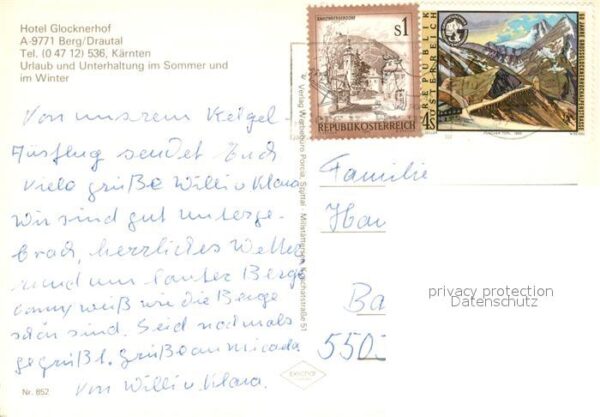 Hotel Glocknerhof
A-9771 Berg/Drautal
Tel. (0 47 12) 536, Kärnten
Urlaub und Unterhaltung im Sommer und
im Winter
Von unserem Kegel
Ausflug sendet Euch
viele grüße Willi u Klara
Wir sind gut unterge-
brach, herrliches Wetter
rund um lauter Berge
wie die Berge
schön sind. Seid nochmals
gegrüßt. Grüße an
Von Willi u Klara.
Nr. 852
S1
REPUBLIK ÖSTERREICH
REPUBLIK
ÖSTERREICH
50 JAHRE GROSSGLOCKNERHOCHALPENSTRASSE
Verlag Werbebüro Porcia, Spittal - Millstättersee,
Familie
Ba
550.-
privacy protection
Datenschutz